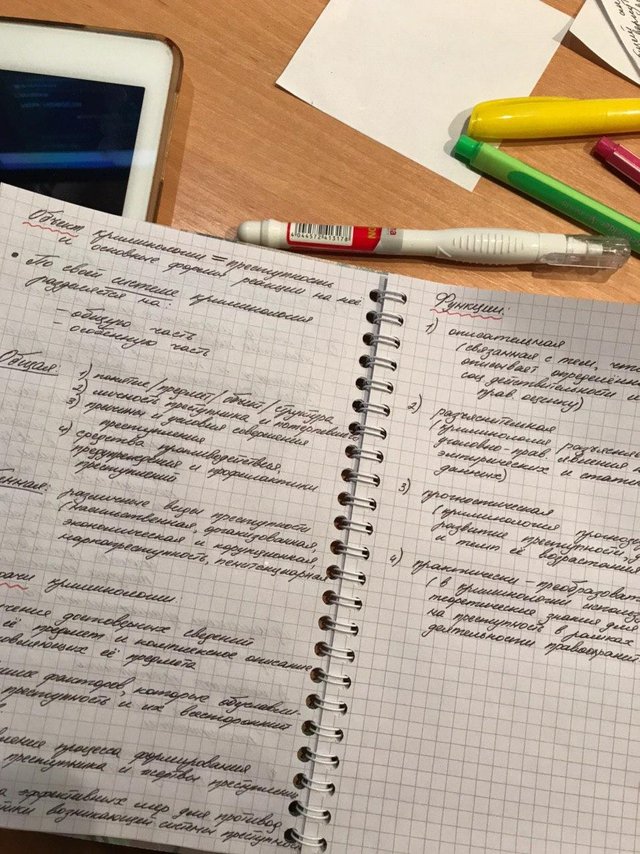 Объект криминологии = преступности
и основные формы реакции на неё
• По своей системе криминология
разделяется на:
– общую часть
– особенную часть
Общая:
1) понятие/предмет/объект/структура
2) личность преступника и потерпевшего
3) причины и условия совершения
преступления
4) средства противодействия,
предупреждения и профилактики
преступлений
различные виды преступности
(насильственная, организованная,
экономическая и коррупционная,
наркопреступность, пенитенциарная
криминологии:
достоверных сведений
её предмет и комплексное описание
её предмета
факторов, которые обуславли
преступность и их всесторонний
процесса формирования
преступника и жертвы преступления
эффективных мер для
возникающей системы преступнос
4044572413178
Функции:
1) описательная
(связанная с тем, что
описывает определённ
соц. действительности и
прав. оценку)
2) разъяснительная
(криминология разъясняе
уголовно-прав. явления
эмпирических и стати
данных)
3) прогностическая
(криминология прогноз
развитие преступности
и темп её возрастания
4) практически-преобразоват
(в криминологии использ
теоретические знания для
на преступность в рамках
деятельности правоохранит